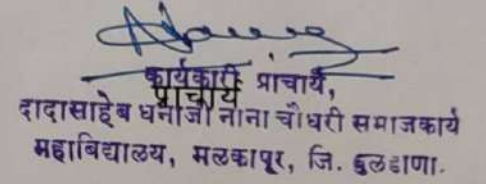 कार्यकारी प्राचार्य,
प्राचार्य
दादासाहेब धनाजी नाना चौधरी समाजकार्य
महाविद्यालय, मलकापूर, जि. बुलडाणा.